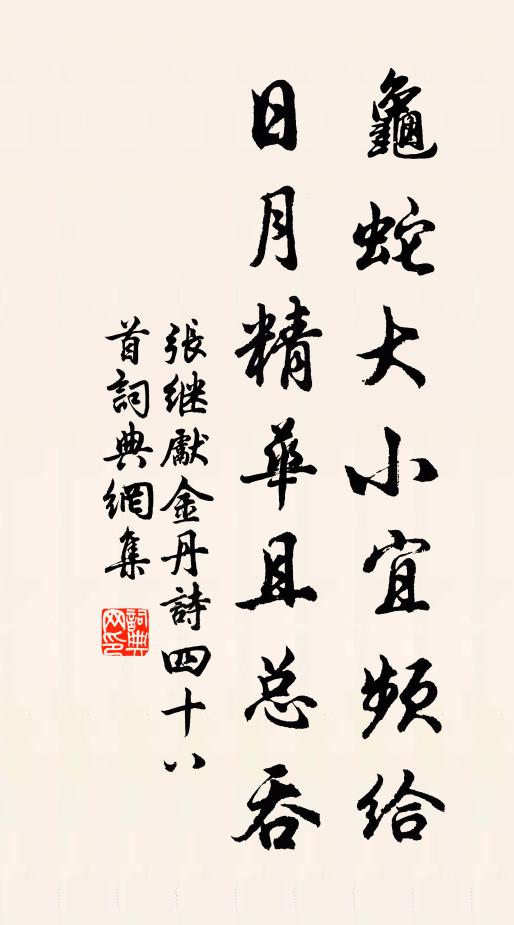 龜蛇大小宜頻給
日月精華且总吞
張继獻金丹詩四十八
首詞典網集
詞典网印